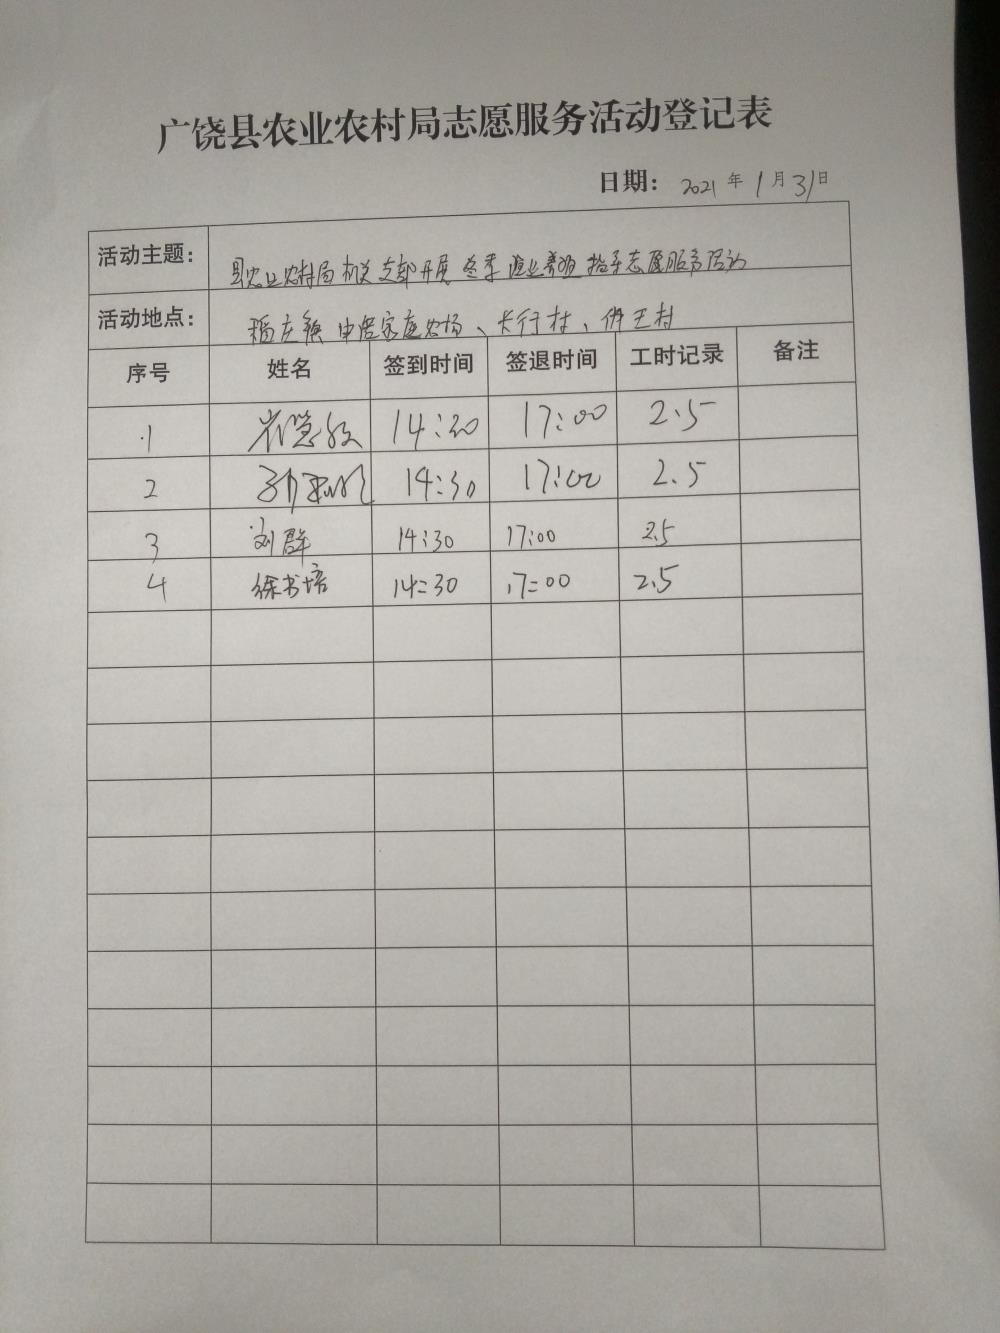 广饶县农业农村局志愿服务活动登记表
日期： 2021 年 1 月 31 日
活动主题： 县农业农村局机关支部开展冬季渔业养殖指导志愿服务活动
活动地点： 稻庄镇 家庭农场、大行村、 王村
序号 姓名 签到时间 签退时间 工时记录 备注
1 14:30 17:00 2.5
2 14:30 17:00 2.5
3 刘群 14:30 17:00 2.5
4 徐书培 14:30 17:00 2.5